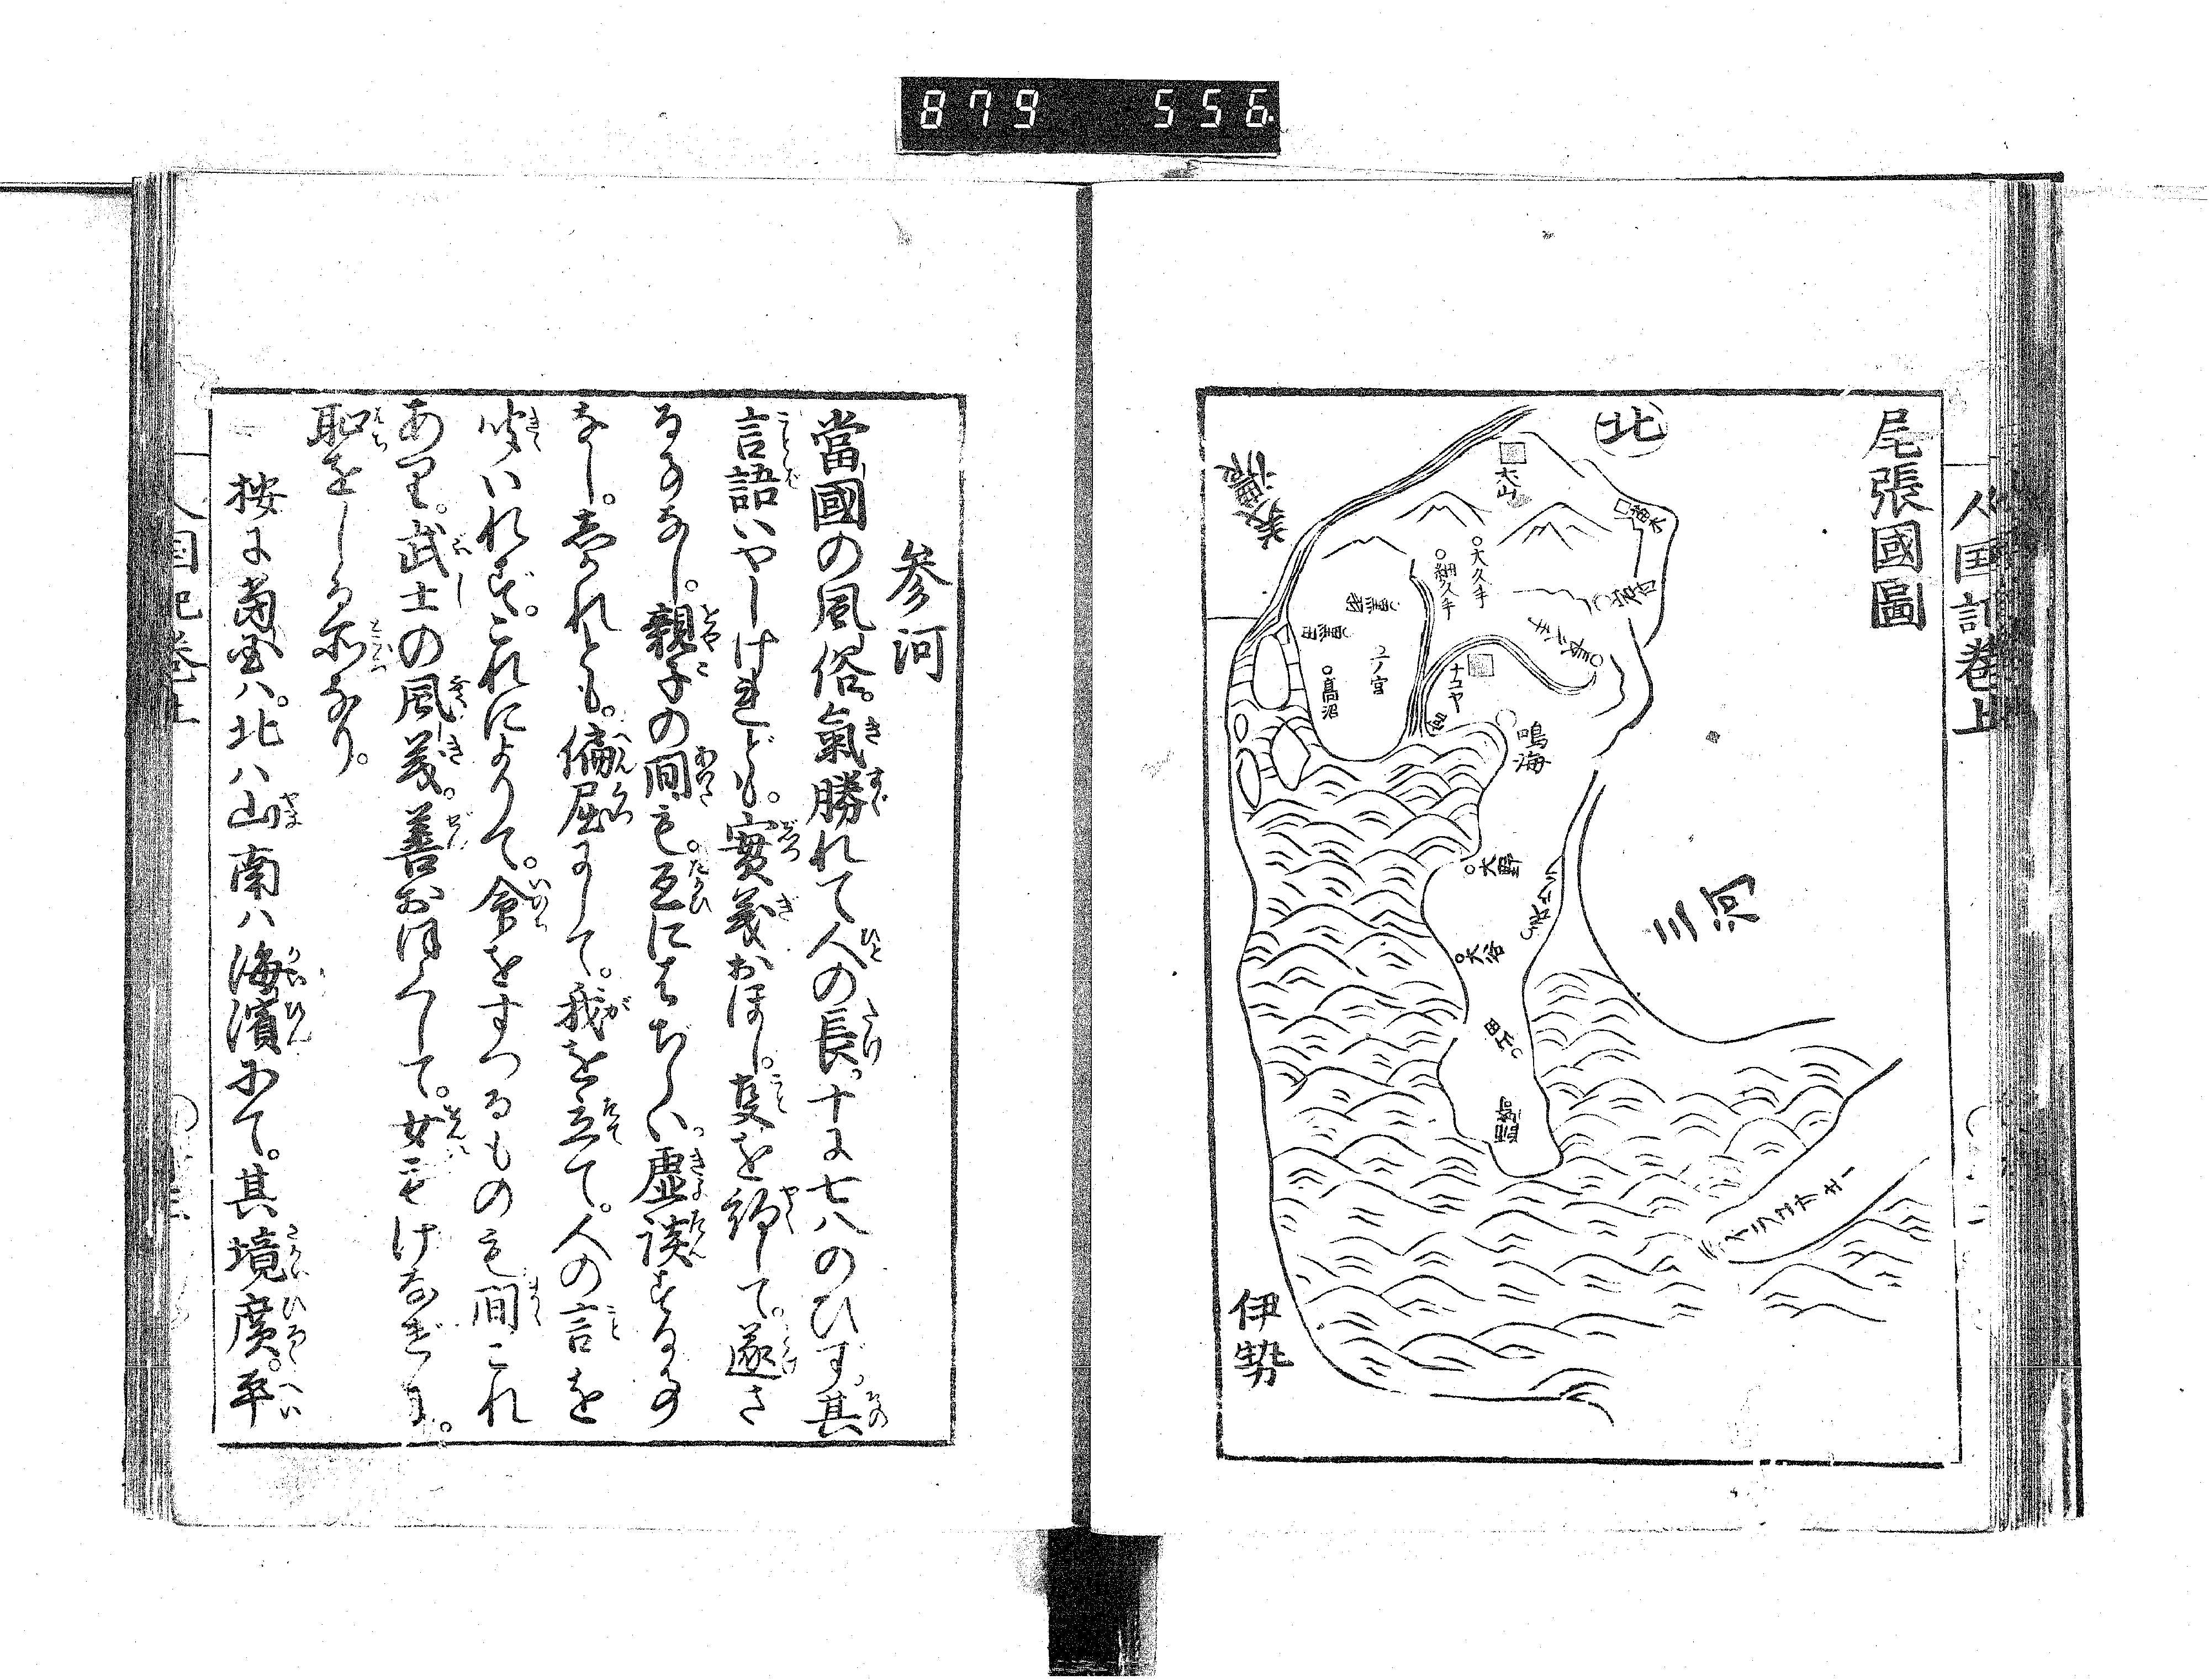 879 556
人国記巻上
尾張國圖
北
美濃
犬山
大久手
細久手
黒田
清須
一ノ宮
高沼
ナコヤ
宮
鳴海
大野
大谷
三河
イラコサキ
伊勢
参河
當國の風俗。氣勝れて人の長。十に七八のひず。其
言語いやしけれども。實義おほし。事を約して。遂さ
る事なし。親子の間も。互にはぢらい虚談する事
なし。しかれとも。偏屈にして。我を立て。人の言を
聞いれず。これによりて。命をすつるもの間これ
あり。武士の風義。善おほくして。女もけなげに。
恥をしる所なり。
按に當国ハ。北ハ山南ハ海濱にて。其境廣。平